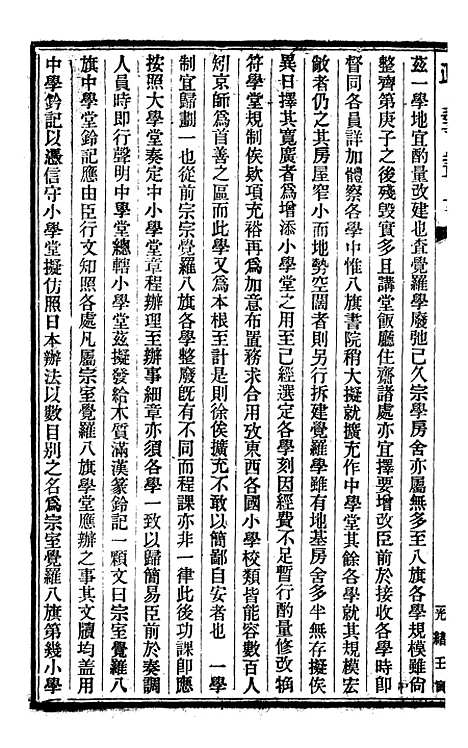 茲一學地宜酌量改建也查覺羅學廢弛已久宗學房舍亦屬無多至八旗各學規模雖尙
整齊第庚子之後殘毀實多且講堂飯廳住齋諸處亦宜擇要增改臣前於接收各學時卽
督同各員詳加體察各學中惟八旗書院稍大擬就擴充作中學堂其餘各學就其規模宏
敞者仍之其房屋窄小而地勢空闊者則另行拆建覺羅學雖有地基房舍多半無存擬俟
異日擇其寬廣者爲增添小學堂之用至已經選定各學刻因經費不足暫行酌量修改犓
符學堂規制俟欵項充裕再爲加意布置務求合用攷東西各國小學校類皆能容數百人
矧京師爲首善之區而此學又爲本根至計是則徐俟擴充不敢以簡鄙自安者也　一學
制宜歸劃一也從前宗宗覺羅八旗各學整廢旣有不同而程課亦非一律此後功課卽應
按照大學堂奏定中小學堂章程辦理至辦事細章亦須各學一致以歸簡易臣前於奏調
人員時卽行聲明中學堂總轄小學堂茲擬發給木質滿漢篆鈐記一顆文曰宗室覺羅八
旗中學堂鈐記應由臣行文知照各處凡屬宗室覺羅八旗學堂應辦之事其文牘均盖用
中學鈐記以憑信守小學堂擬仿照日本辦法以數目別之名爲宗室覺羅八旗第幾小學
光緒壬寅